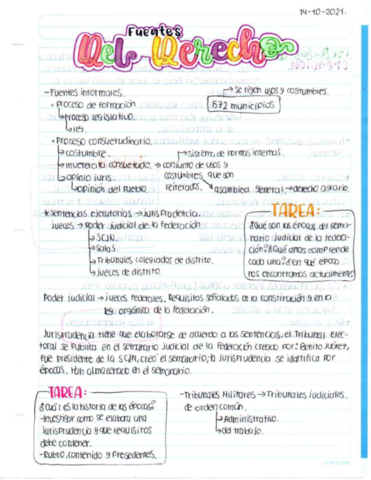 14-10-2021.
Fuentes
Del Derecho
- Fuentes informales.
→ Se rigen usos y costumbres.
• Proceso de formación
672 municipios
↳ Proceso legislativo.
↳ les.
• Proceso consuetudinario.
↳ costumbre.
→ sistema de normas internas.
↳ inveterata consuetudo → conjunto de usos y
↳ opinio iuris.
costumbres, que son
↳ Opinión del Pueblo.
reiterados.
→ asamblea general → derecho agrario.
* Sentencias ejecutorias → Jurisprudencia.
Jueces → Poder Judicial de la Federación
↳ SCJN
↳ Salas
↳ Tribunales colegiados de distrito.
↳ Jueces de distrito.
TAREA:
¿Qué son las épocas del sema-
nario Judicial de la federa-
ción? ¿Qué años comprende
cada una? ¿en qué época
nos encontramos actualmente?
Poder Judicial → Jueces federales. Requisitos señalados en la constitución y en la
ley orgánica de la federación.
Jurisprudencia tiene que elaborarse de acuerdo a las sentencias, el Tribunal elec-
toral se publica en el semanario Judicial de la Federación creado por: Benito Juárez,
fue presidente de la SCJN, creó el semanario; la Jurisprudencia se identifica por
épocas, han almacenado en el semanario.
TAREA:
¿Qué es la historia de las épocas?
- Investigar como se elabora una
Jurisprudencia y que requisitos
debe contener.
- Rubro, contenido y Precedentes.
- Tribunales Militares → Tribunales Judiciales
de orden común.
↳ Administrativo.
↳ del trabajo.